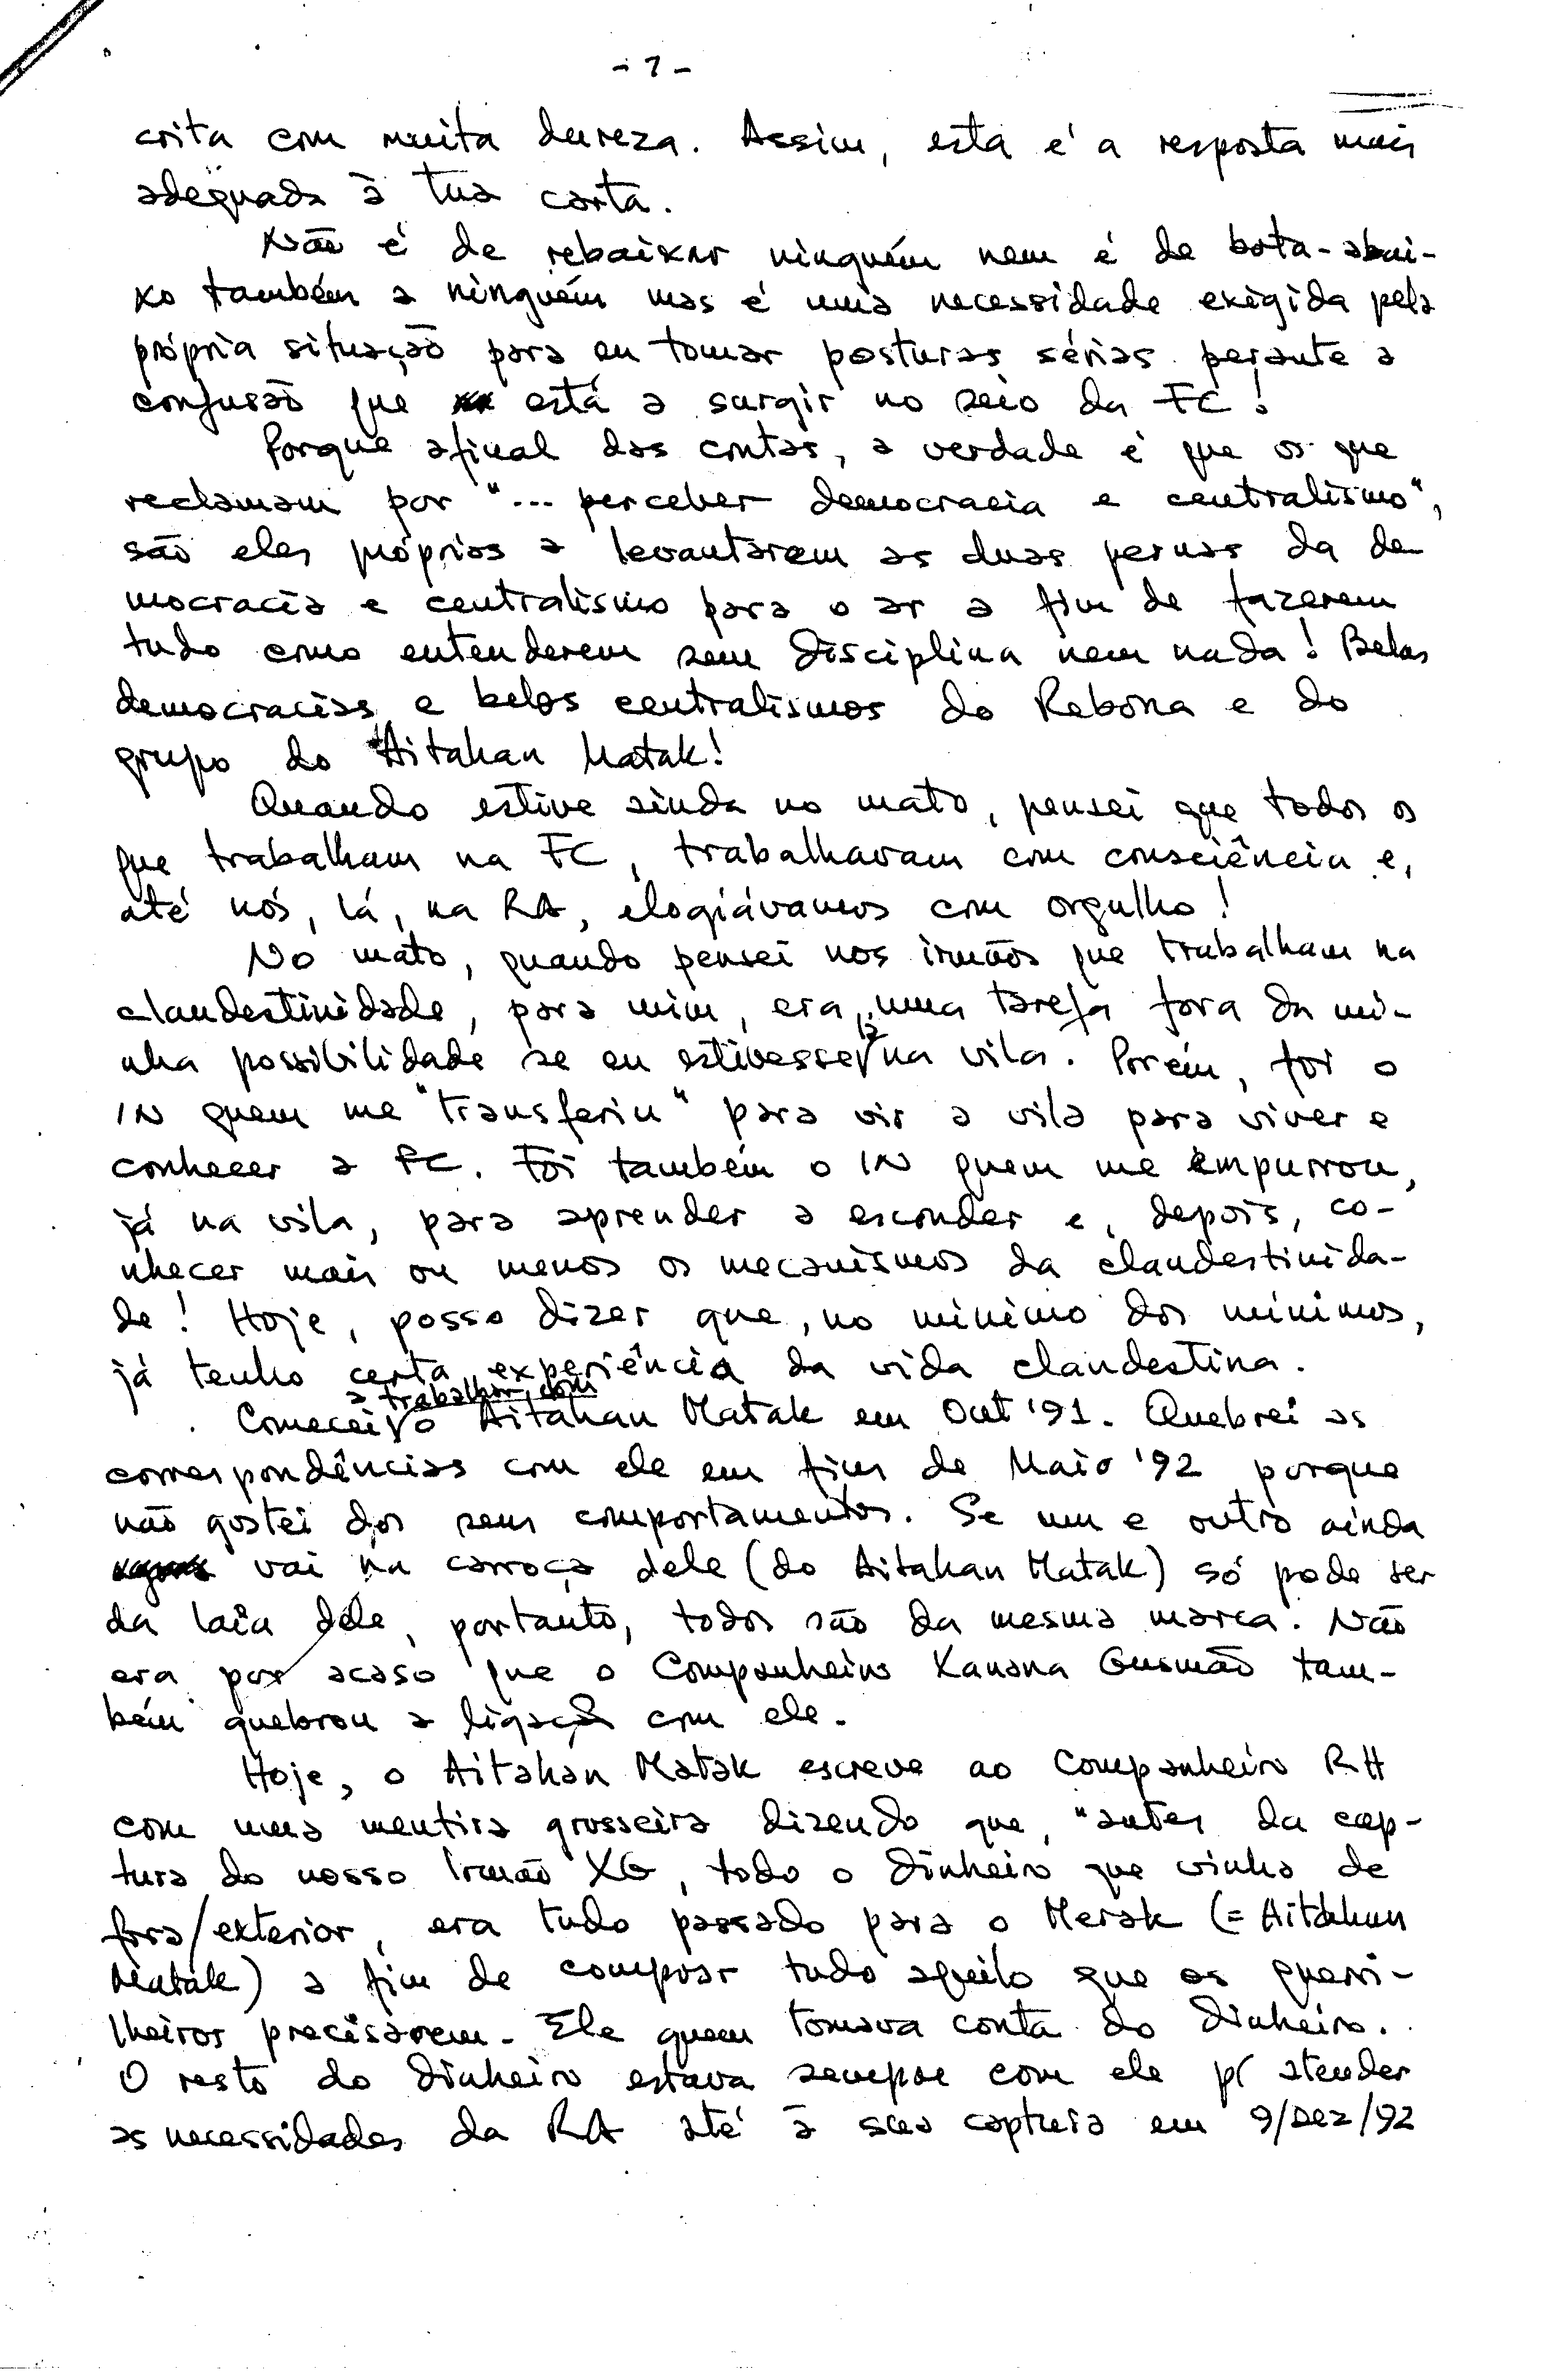 - 7 -
crita com muita dureza. Assim, esta é a resposta mais
adequada à tua carta.
Não é de rebaixar ninguém nem é de bota-abai-
xo também a ninguém mas é uma necessidade exigida pela
própria situação para eu tomar posturas sérias perante a
confusão que está a surgir no seio da FC!
Porque afinal das contas, a verdade é que os que
reclamam por "... perceber democracia e centralismo",
são eles próprios a levantarem as duas pernas da de
mocracia e centralismo para o ar a fim de fazerem
tudo como entenderem sem disciplina nem nada! Belas
democracias e belos centralismos do Rebona e do
grupo do Aitahan Matak!
Quando estive ainda no mato, pensei que todos os
que trabalham na FC, trabalhavam com consciência e,
até nós, lá, na RA, elogiávamos com orgulho!
No mato, quando pensei nos irmãos que trabalham na
clandestinidade, para mim, era uma tarefa fora da mi-
nha possibilidade se eu estivesse lá na vila. Porém, foi o
IN quem me "transferiu" para vir a vila para viver e
conhecer a FC. Foi também o IN quem me empurrou,
já na vila, para aprender a esconder e, depois, co-
nhecer mais ou menos os mecanismos da clandestinida-
de! Hoje, posso dizer que, no mínimo dos mínimos,
já tenho certa experiência da vida clandestina.
Comecei a trabalhar com o Aitahan Matak em Out '91. Quebrei as
correspondências com ele em fins de Maio '92 porque
não gostei dos seus comportamentos. Se um e outro ainda
vai na carroça dele (do Aitahan Matak) só pode ser
da laia dele, portanto, todos são da mesma marca. Não
era por acaso que o Companheiro Kanana Gusmão tam-
bém quebrou a ligação com ele.
Hoje, o Aitahan Matak escreve ao Companheiro RH
com uma mentira grosseira dizendo que, "antes da cap-
tura do nosso Irmão XG, todo o dinheiro que vinha de
fora/exterior, era tudo passado para o Merak (= Aitahan
Matak) a fim de compoar tudo aquilo que os guerri-
lheiros precisarem. Ele quem tomava conta do dinheiro.
O resto do dinheiro estava sempre com ele p/ atender
as necessidades da RA até à sua captura em 9/Dez/92